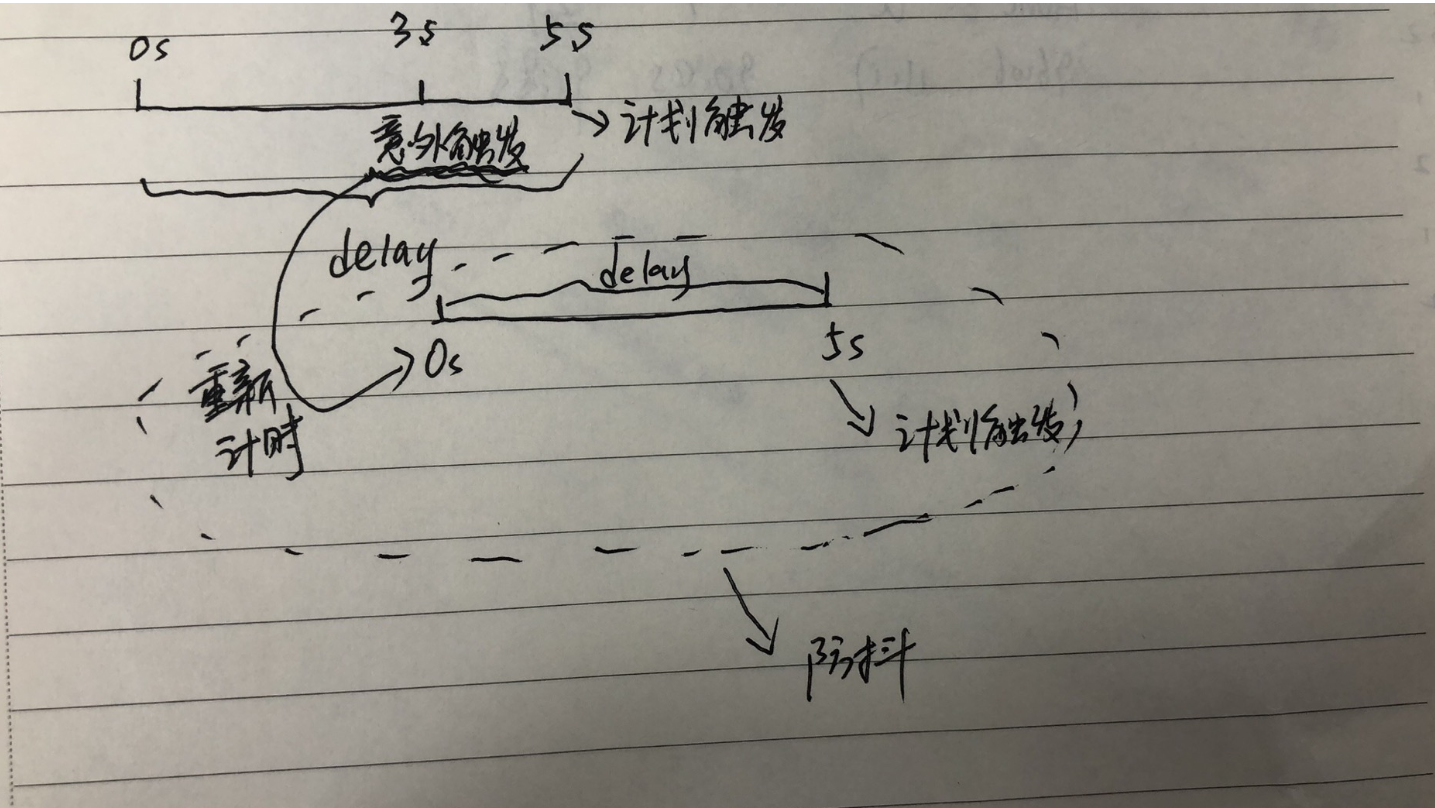 0s 3s 5s
计划触发
意外触发
delay
delay
0s
5s
重新
计时
计划触发
防抖